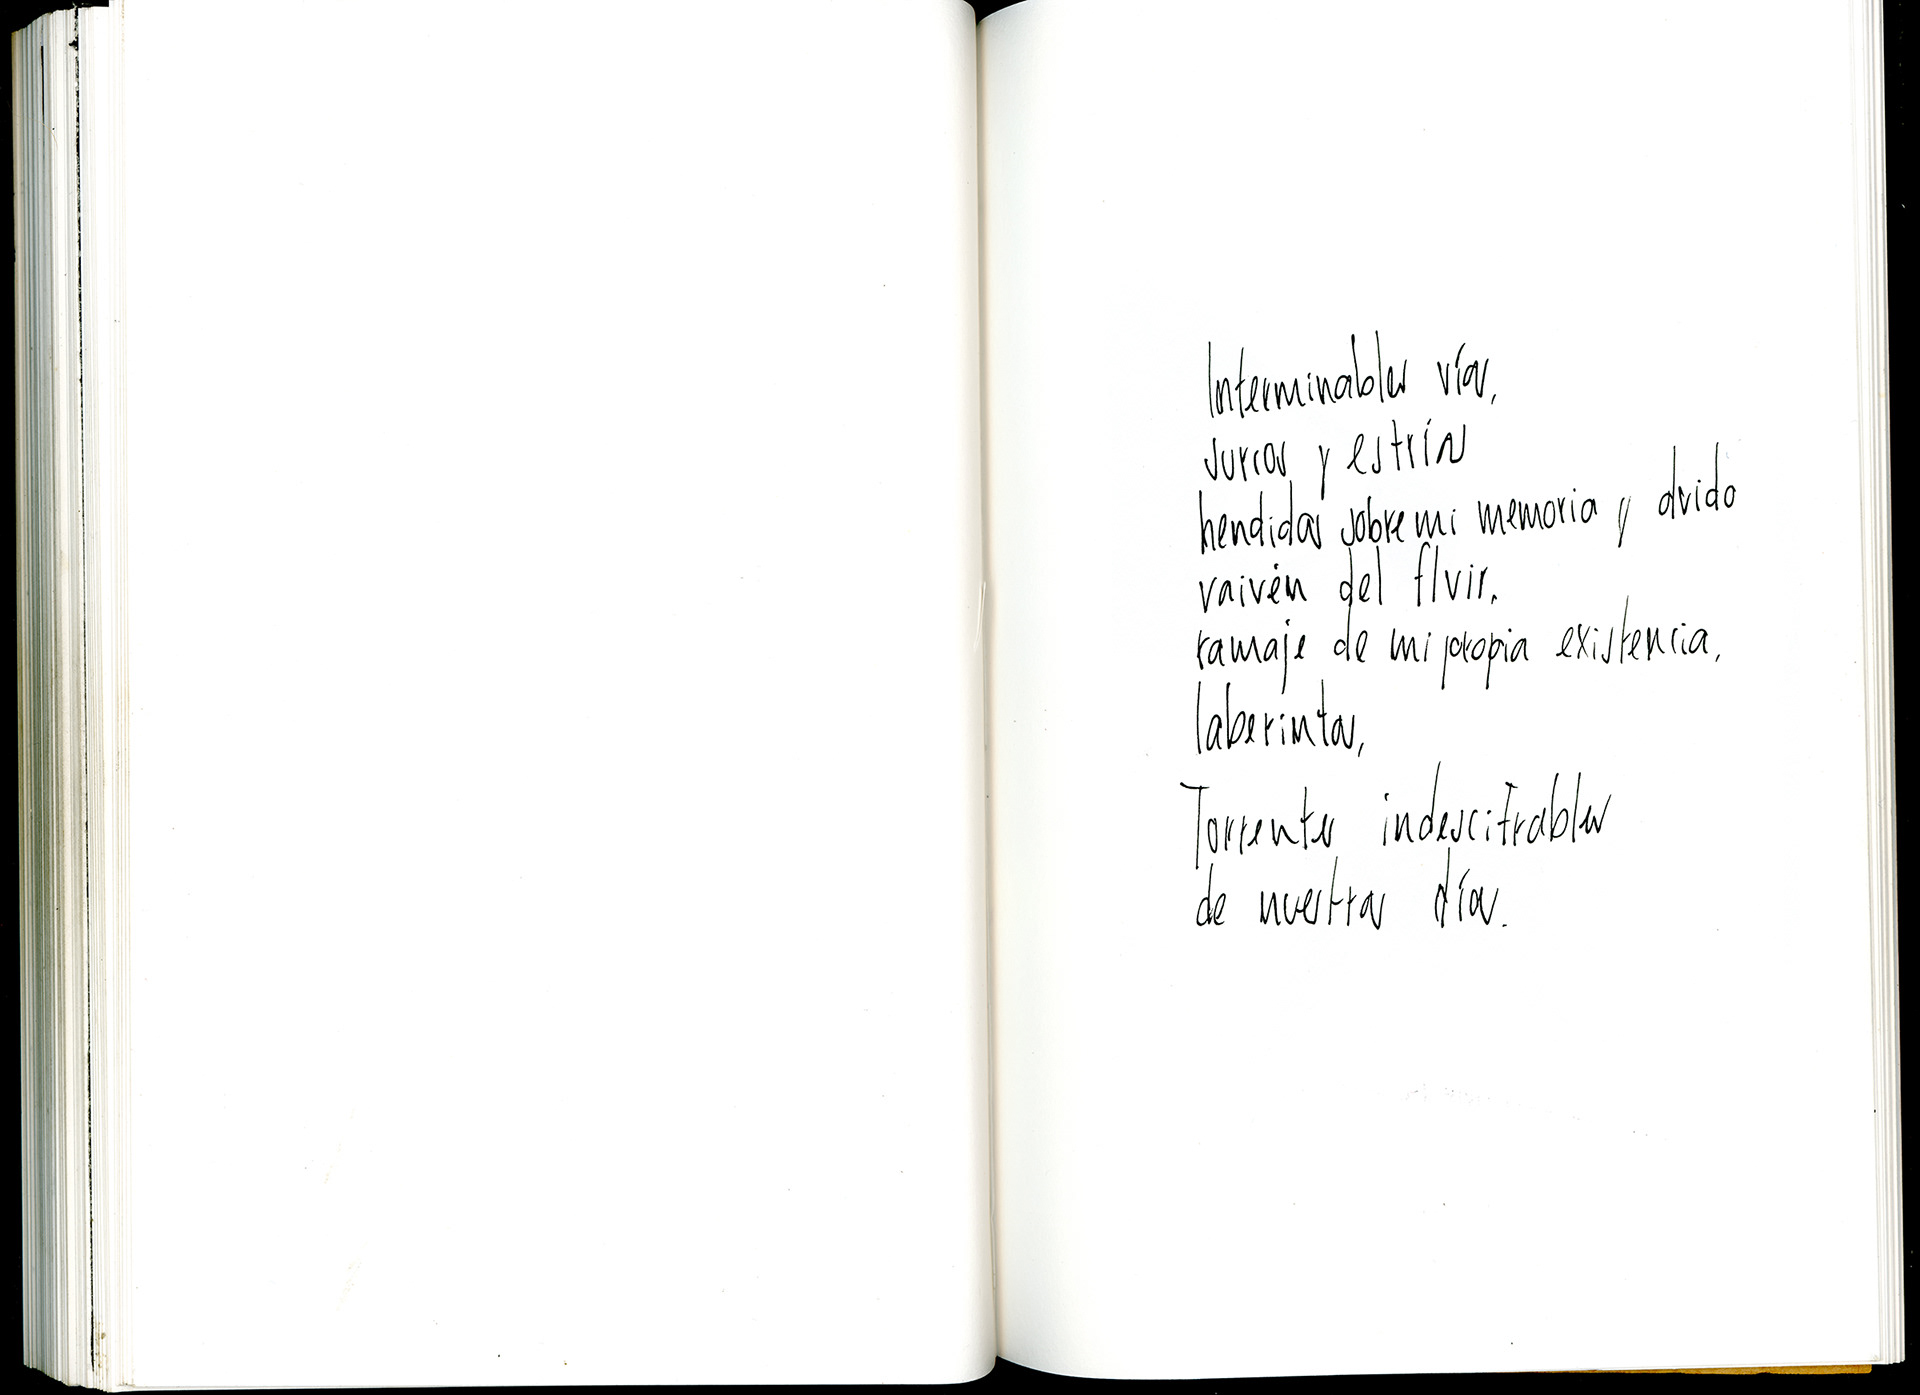 Interminables vías,
surcos y estrías
hendidas sobre mi memoria y olvido
vaivén del fluir,
ramaje de mi propia existencia,
laberintos,
Torrentes indescifrables
de nuestros días.